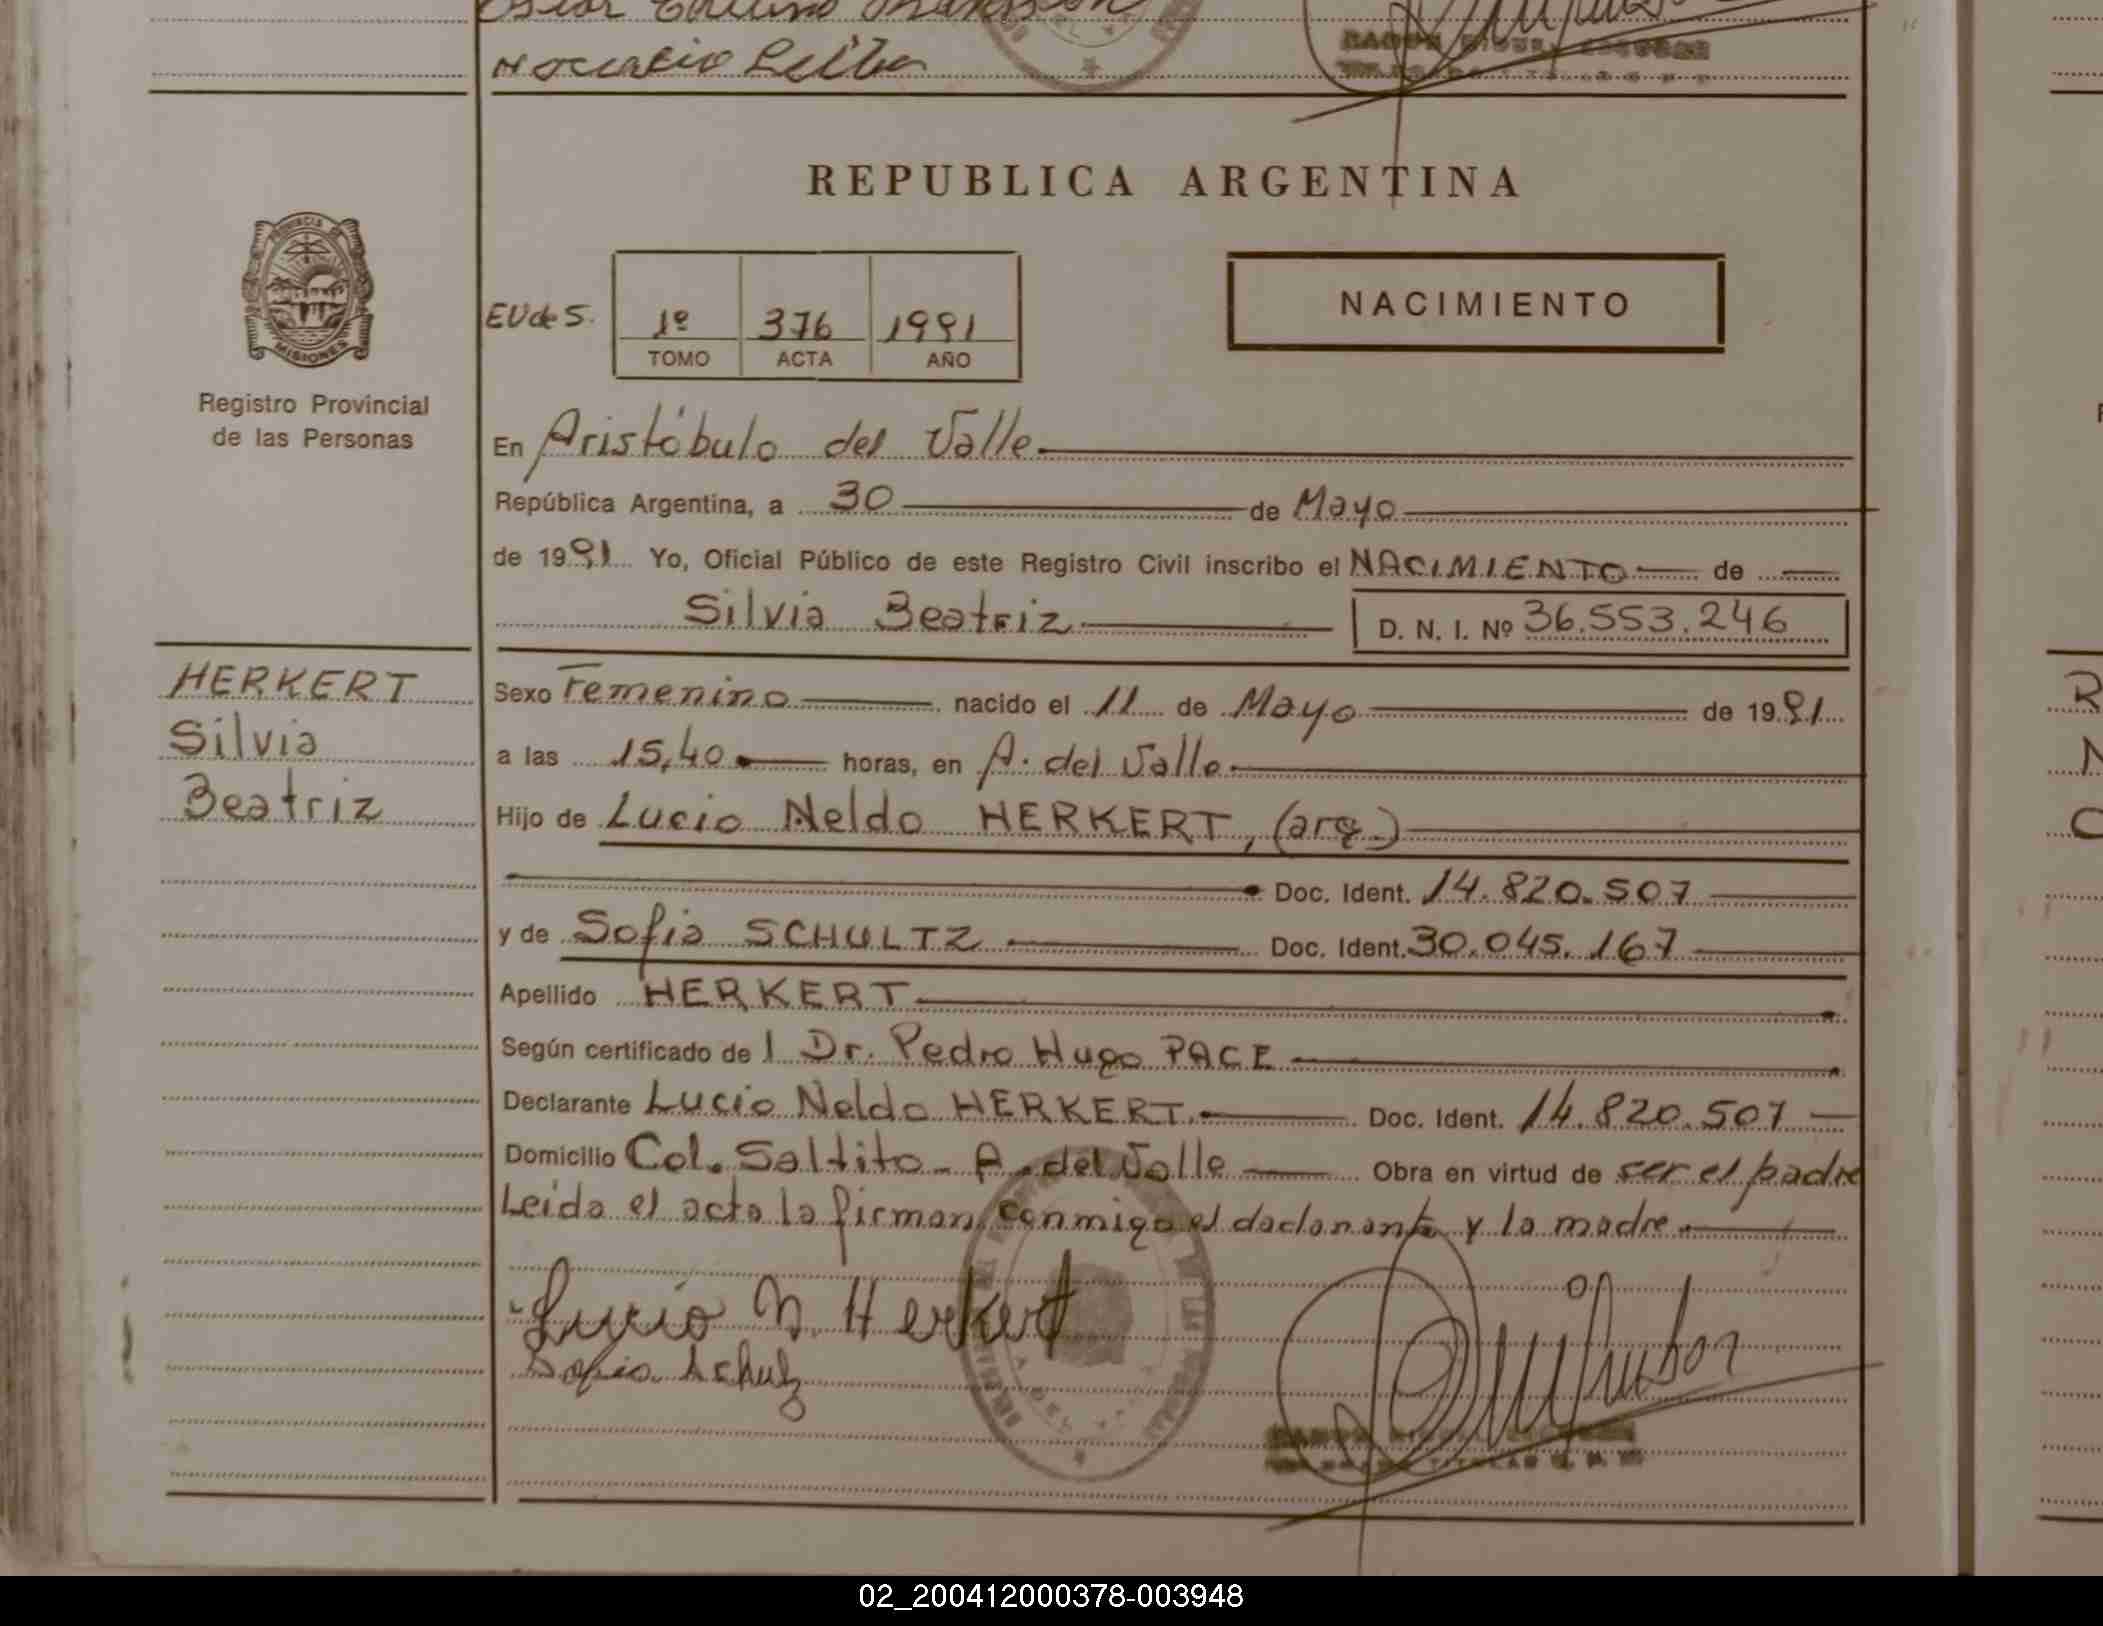 Horacio
REPUBLICA ARGENTINA
PROVINCIA DE
MISIONES
Registro Provincial
de las Personas
NACIMIENTO
EV de S.
1º 376 1991
TOMO ACTA AÑO
En Aristóbulo del Valle
República Argentina, a 30 de Mayo
de 1991 Yo, Oficial Público de este Registro Civil inscribo el NACIMIENTO de
Silvia Beatriz D. N. I. Nº 36.553.246
HERKERT
Silvia
Beatriz
Sexo Femenino nacido el 11 de Mayo de 1991
a las 15,40 horas, en A. del Valle
Hijo de Lucio Neldo HERKERT, (arg.)
Doc. Ident. 14.820.507
y de Sofia SCHULTZ Doc. Ident. 30.045.167
Apellido HERKERT
Según certificado de l Dr. Pedro Hugo PACE
Declarante Lucio Neldo HERKERT. Doc. Ident. 14.820.507
Domicilio Col. Saltito - A. del Valle Obra en virtud de ser el padre
Leida el acta la firman conmigo el declarante y la madre.
Lucio N. Herkert
Sofia Schulz
02_200412000378-003948